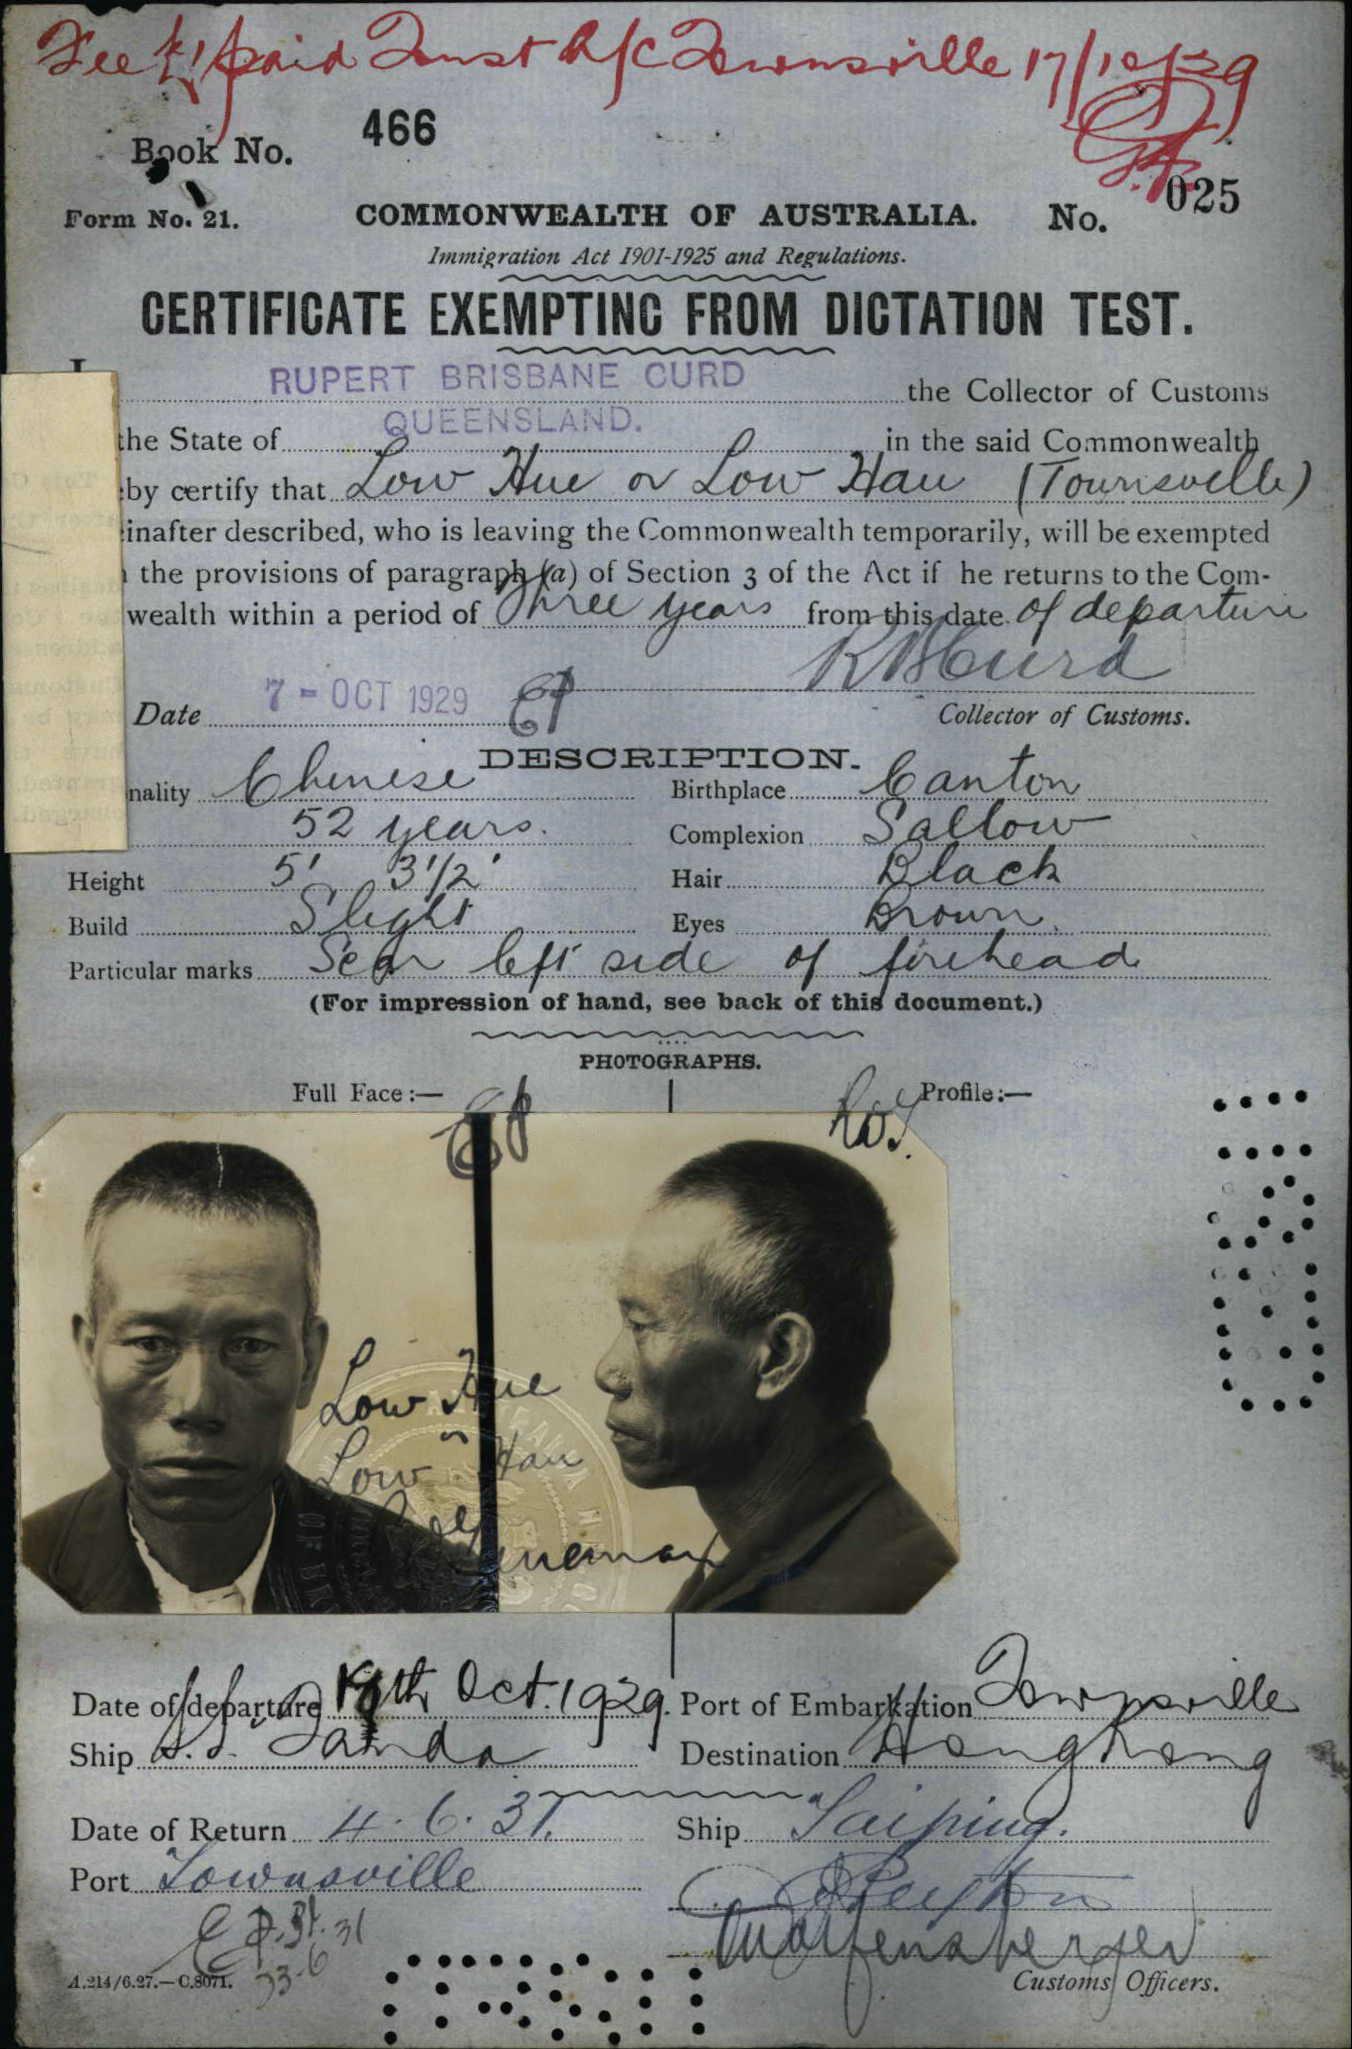 Fee £1 paid Trust A/C Townsville 17/10/29
Book No. 466
Form No. 21. COMMONWEALTH OF AUSTRALIA. No. 025
Immigration Act 1901-1925 and Regulations.
CERTIFICATE EXEMPTING FROM DICTATION TEST.
I RUPERT BRISBANE CURD the Collector of Customs
the State of QUEENSLAND. in the said Commonwealth
by certify that Low Hue or Low Hau (Townsville)
inafter described, who is leaving the Commonwealth temporarily, will be exempted
the provisions of paragraph (a) of Section 3 of the Act if he returns to the Com-
wealth within a period of Three years from this date of departure
R B Curd
Date 7 - OCT 1929 Collector of Customs.
DESCRIPTION.
nality Chinese Birthplace Canton
52 years. Complexion Sallow
Height 5' 3 1/2" Hair Black
Build Slight Eyes Brown
Particular marks Scar left side of forehead
(For impression of hand, see back of this document.)
PHOTOGRAPHS.
Full Face:— Profile:—
Low Hue
or
Low Hau
Date of departure 17th Oct. 1929. Port of Embarkation Townsville
Ship S.S. Tanda Destination Hong Kong
Date of Return 4.6.31. Ship Taiping.
Port Townsville
A.214/6.27.—C.8071. Customs Officers.